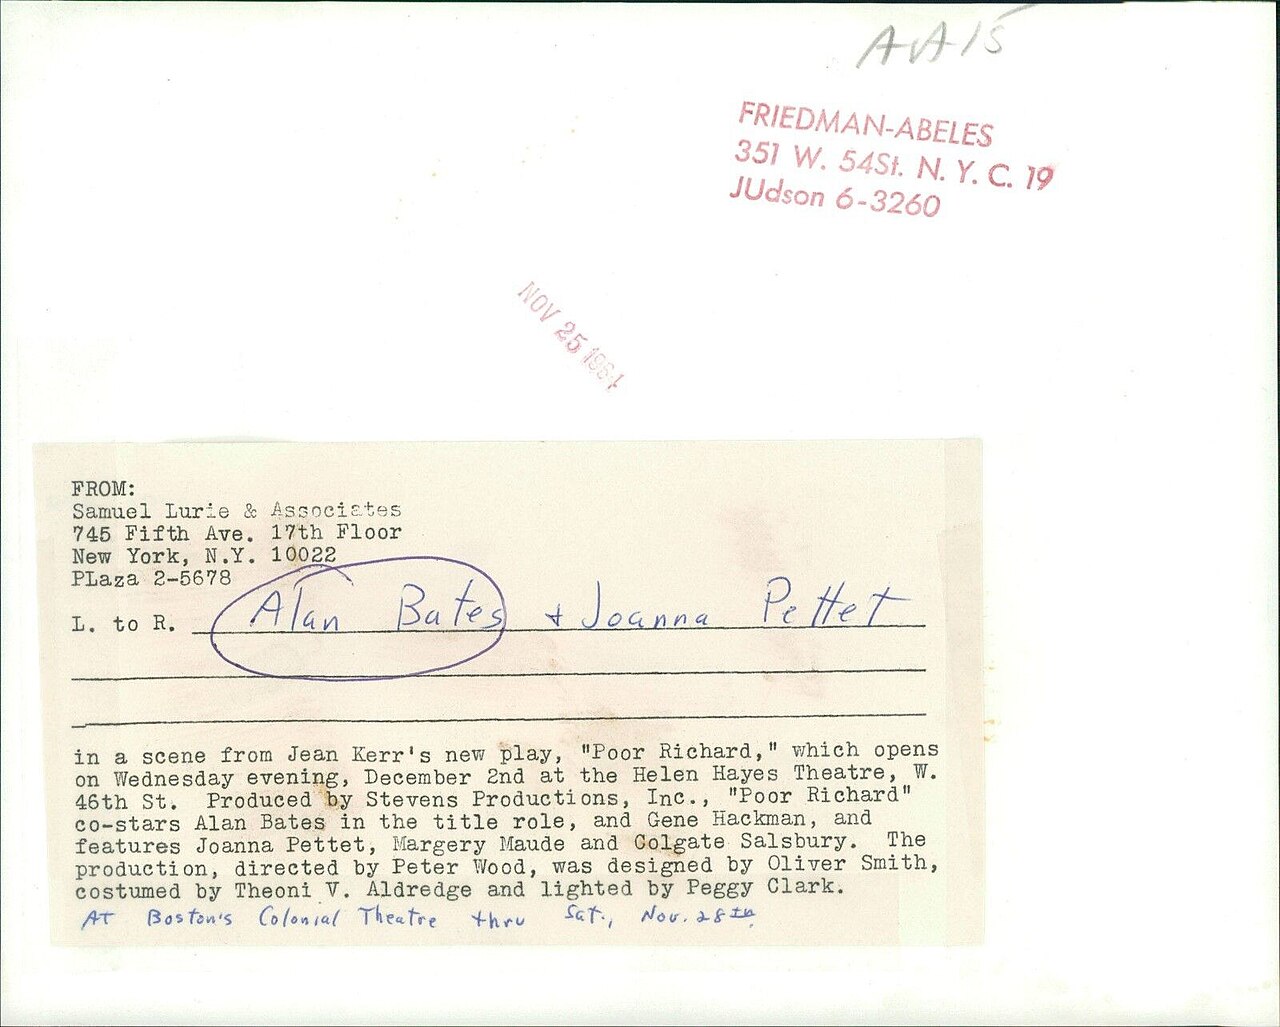 AA15
FRIEDMAN-ABELES
351 W. 54St. N. Y. C. 19
JUdson 6-3260
NOV 25 1964
FROM:
Samuel Lurie & Associates
745 Fifth Ave. 17th Floor
New York, N.Y. 10022
PLaza 2-5678
L. to R. Alan Bates + Joanna Pettet
in a scene from Jean Kerr's new play, "Poor Richard," which opens
on Wednesday evening, December 2nd at the Helen Hayes Theatre, W.
46th St. Produced by Stevens Productions, Inc., "Poor Richard"
co-stars Alan Bates in the title role, and Gene Hackman, and
features Joanna Pettet, Margery Maude and Colgate Salsbury. The
production, directed by Peter Wood, was designed by Oliver Smith,
costumed by Theoni V. Aldredge and lighted by Peggy Clark.
At Boston's Colonial Theatre thru Sat., Nov. 28th